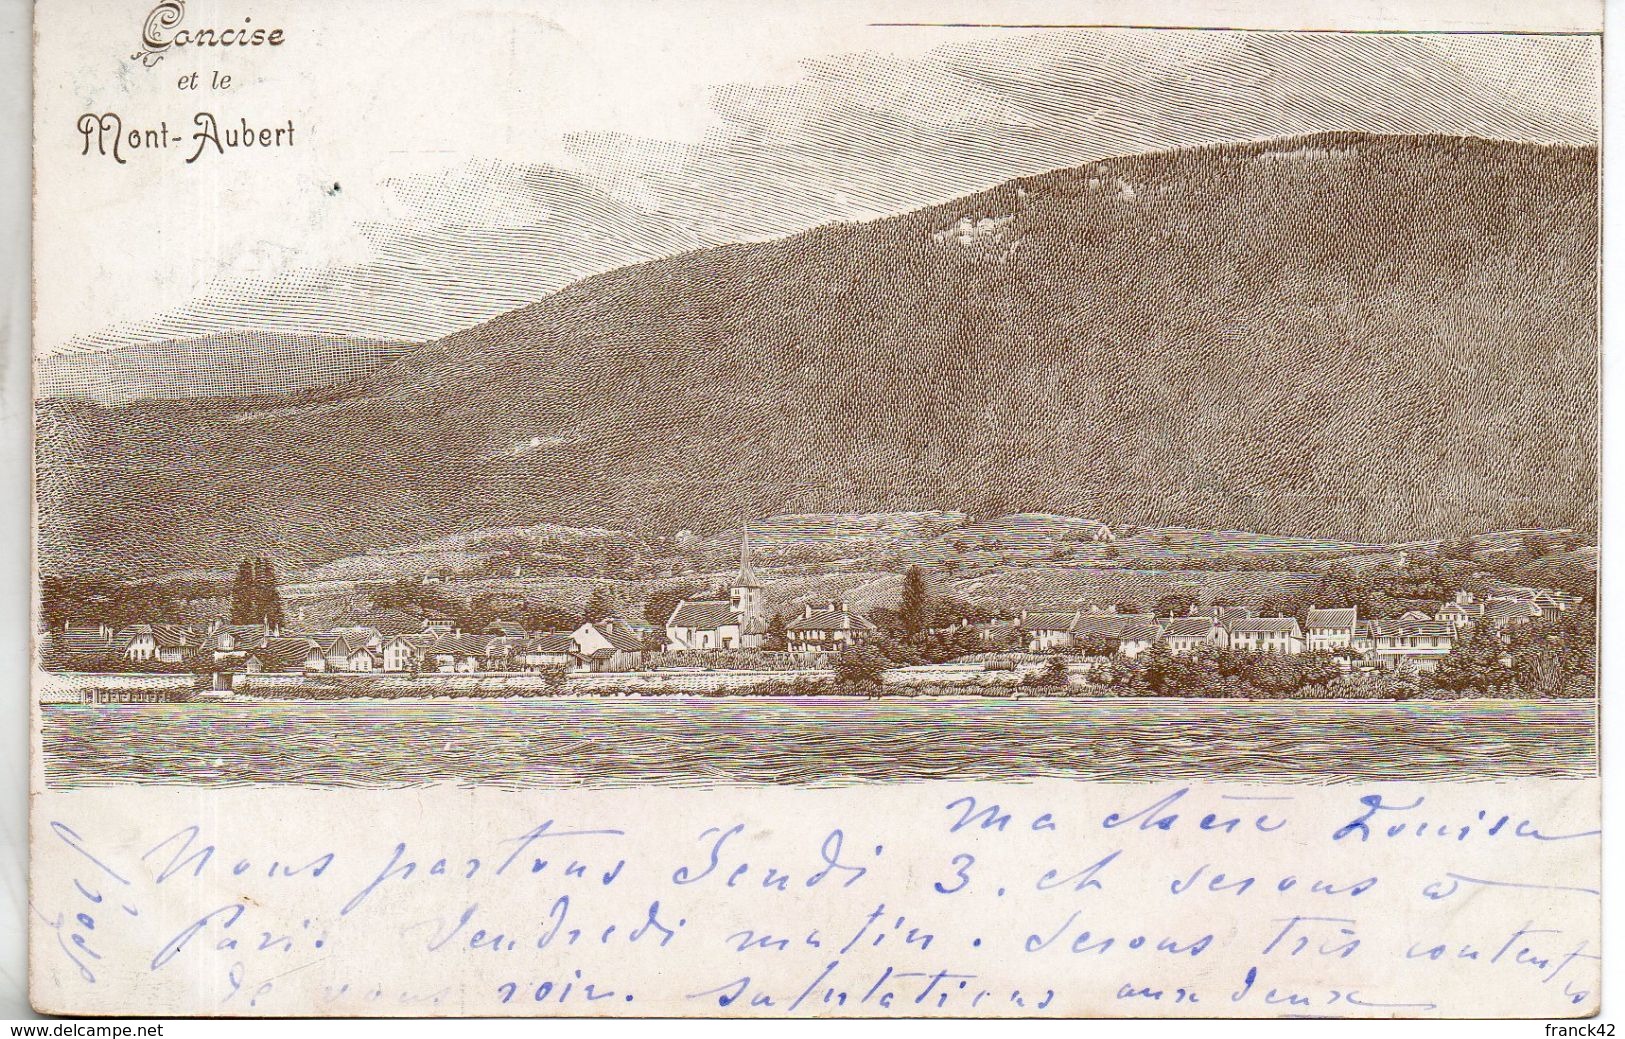 Concise
et le
Mont-Aubert
Ma chère Louisa
Nous partons Jeudi 3. et serons à
Paris Vendredi matin. Serons très contents
de vous voir. Salutations aux deux
www.delcampe.net
franck42